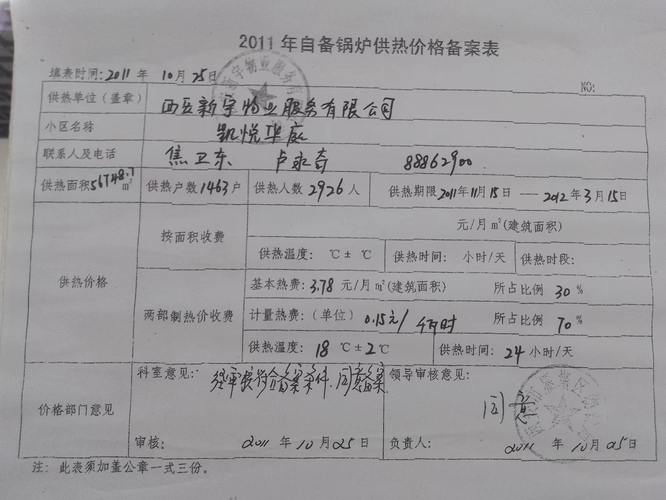 2011年自备锅炉供热价格备案表
填表时间:2011年10月25日 NO:
供热单位(盖章) 西安新宇物业服务有限公司
小区名称 凯悦华庭
联系人及电话 焦卫东 卢永奇 88862900
供热面积56748.7m² 供热户数1463户 供热人数2926人 供热期限2011年11月15日——2012年3月15日
供热价格 按面积收费 元/月m²(建筑面积)
供热温度: ℃± ℃ 供热时间: 小时/天 供热时段:
两部制热价收费 基本热费:3.78元/月m²(建筑面积) 所占比例30%
计量热费:(单位) 0.15元/千瓦时 所占比例70%
供热温度:18℃±2℃ 供热时间:24小时/天
价格部门意见 科室意见: 经审核符合备案条件,同意备案 领导审核意见: 同意
审核: 2011年10月25日 负责人: 2011年10月25日
注:此表须加盖公章一式三份。